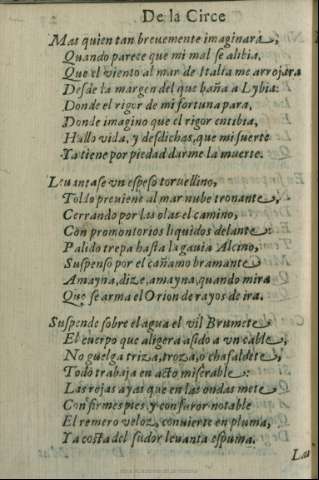 De la Circe
Mas quien tan breuemente imaginara,
Quando parece que mi mal se aliuia,
Que el viento al mar de Italia me arrojara
Desde la margen del que baña a Lybia:
Donde el rigor de mi fortuna para,
Donde imagino que el rigor entibia,
Hallo vida, y desdichas, que mi suerte
Ya tiene por piedad darme la muerte.
Leuantase vn espeso toruellino,
Toldo preuiene al mar nube tronante,
Cerrando por las olas el camino,
Con promontorios liquidos delante:
Palido trepa hasta la gauia Alcino,
Suspenso por el cañamo bramante
Amayna, dize, amayna, quando mira
Que se arma el Orion de rayos de ira.
Suspende sobre el agua el vil Brumete
El cuerpo que aligera asido a vn cable,
No guelga triza, troza, o chafaldete,
Todo trabaja en acto miserable:
Las rojas ayas que en las ondas mete
Con firmes pies, y con furor notable
El remero veloz, conuierte en pluma,
Ya costa del sudor leuanta espuma.
Lau